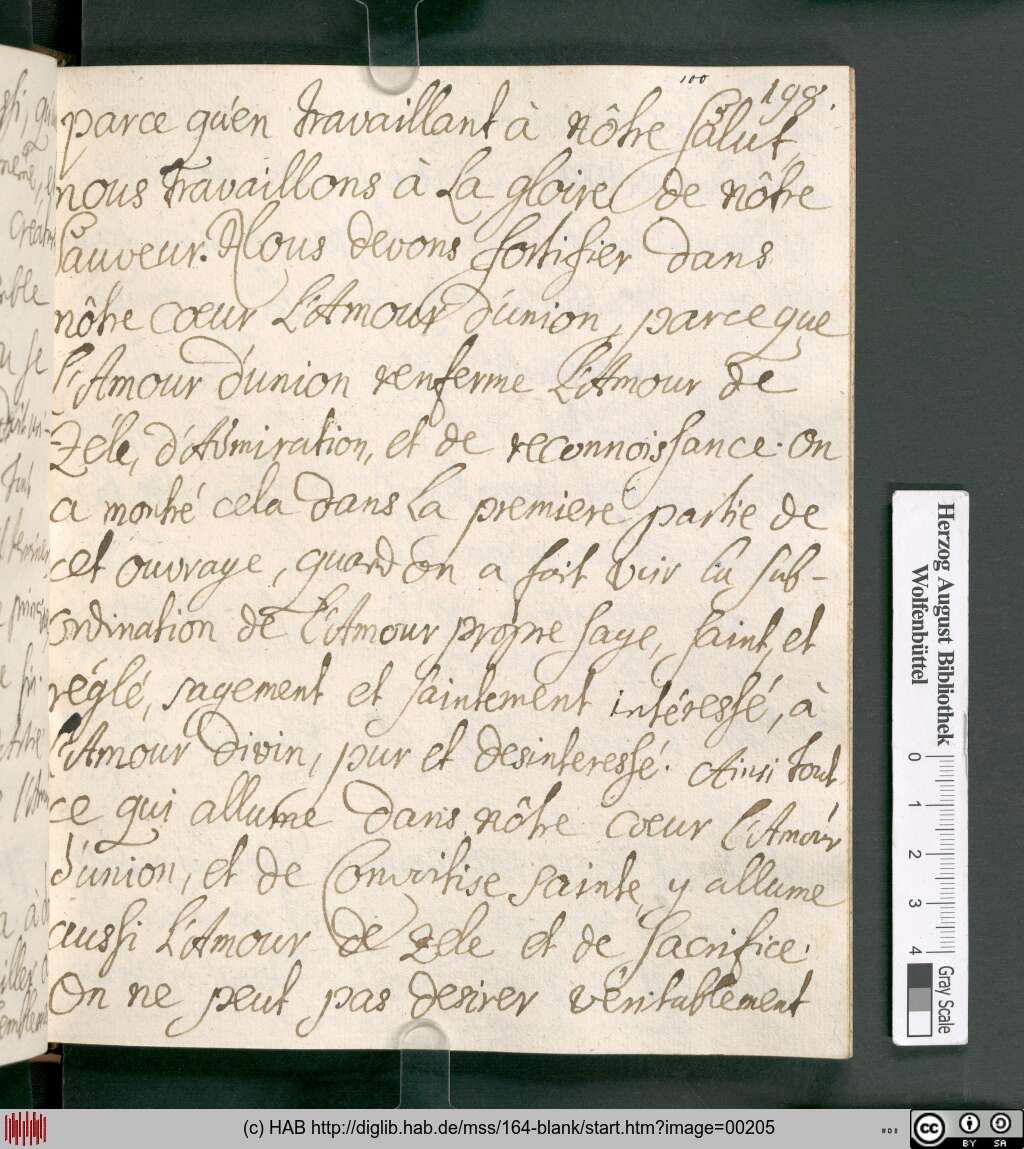 100 198.
parce qu'en travaillant à nôtre Salut,
nous travaillons à La gloire de nôtre
Sauveur. Nous devons fortifier dans
nôtre cœur L'Amour d'union, parce que
l'Amour d'union renferme L'Amour de
Zéle, d'Admiration, et de reconnoissance. On
a montré cela dans La premiere partie de
cet ouvraye, quand On a fait voir la sub-
Ordination de l'Amour propre saye, saint, et
réglé, sagement et saintement intéressé, à
l'Amour divin, pur et desinteressé. Ainsi tout
ce qui allume dans nôtre cœur l'Amour
d'union, et de Convoitise sainte, y allume
aussi l'Amour de zele et de sacrifice.
On ne peut pas desirer véritablement
Herzog August Bibliothek
Wolfenbüttel
0 1 2 3 4
Gray Scale
(c) HAB http://diglib.hab.de/mss/164-blank/start.htm?image=00205
cc BY SA